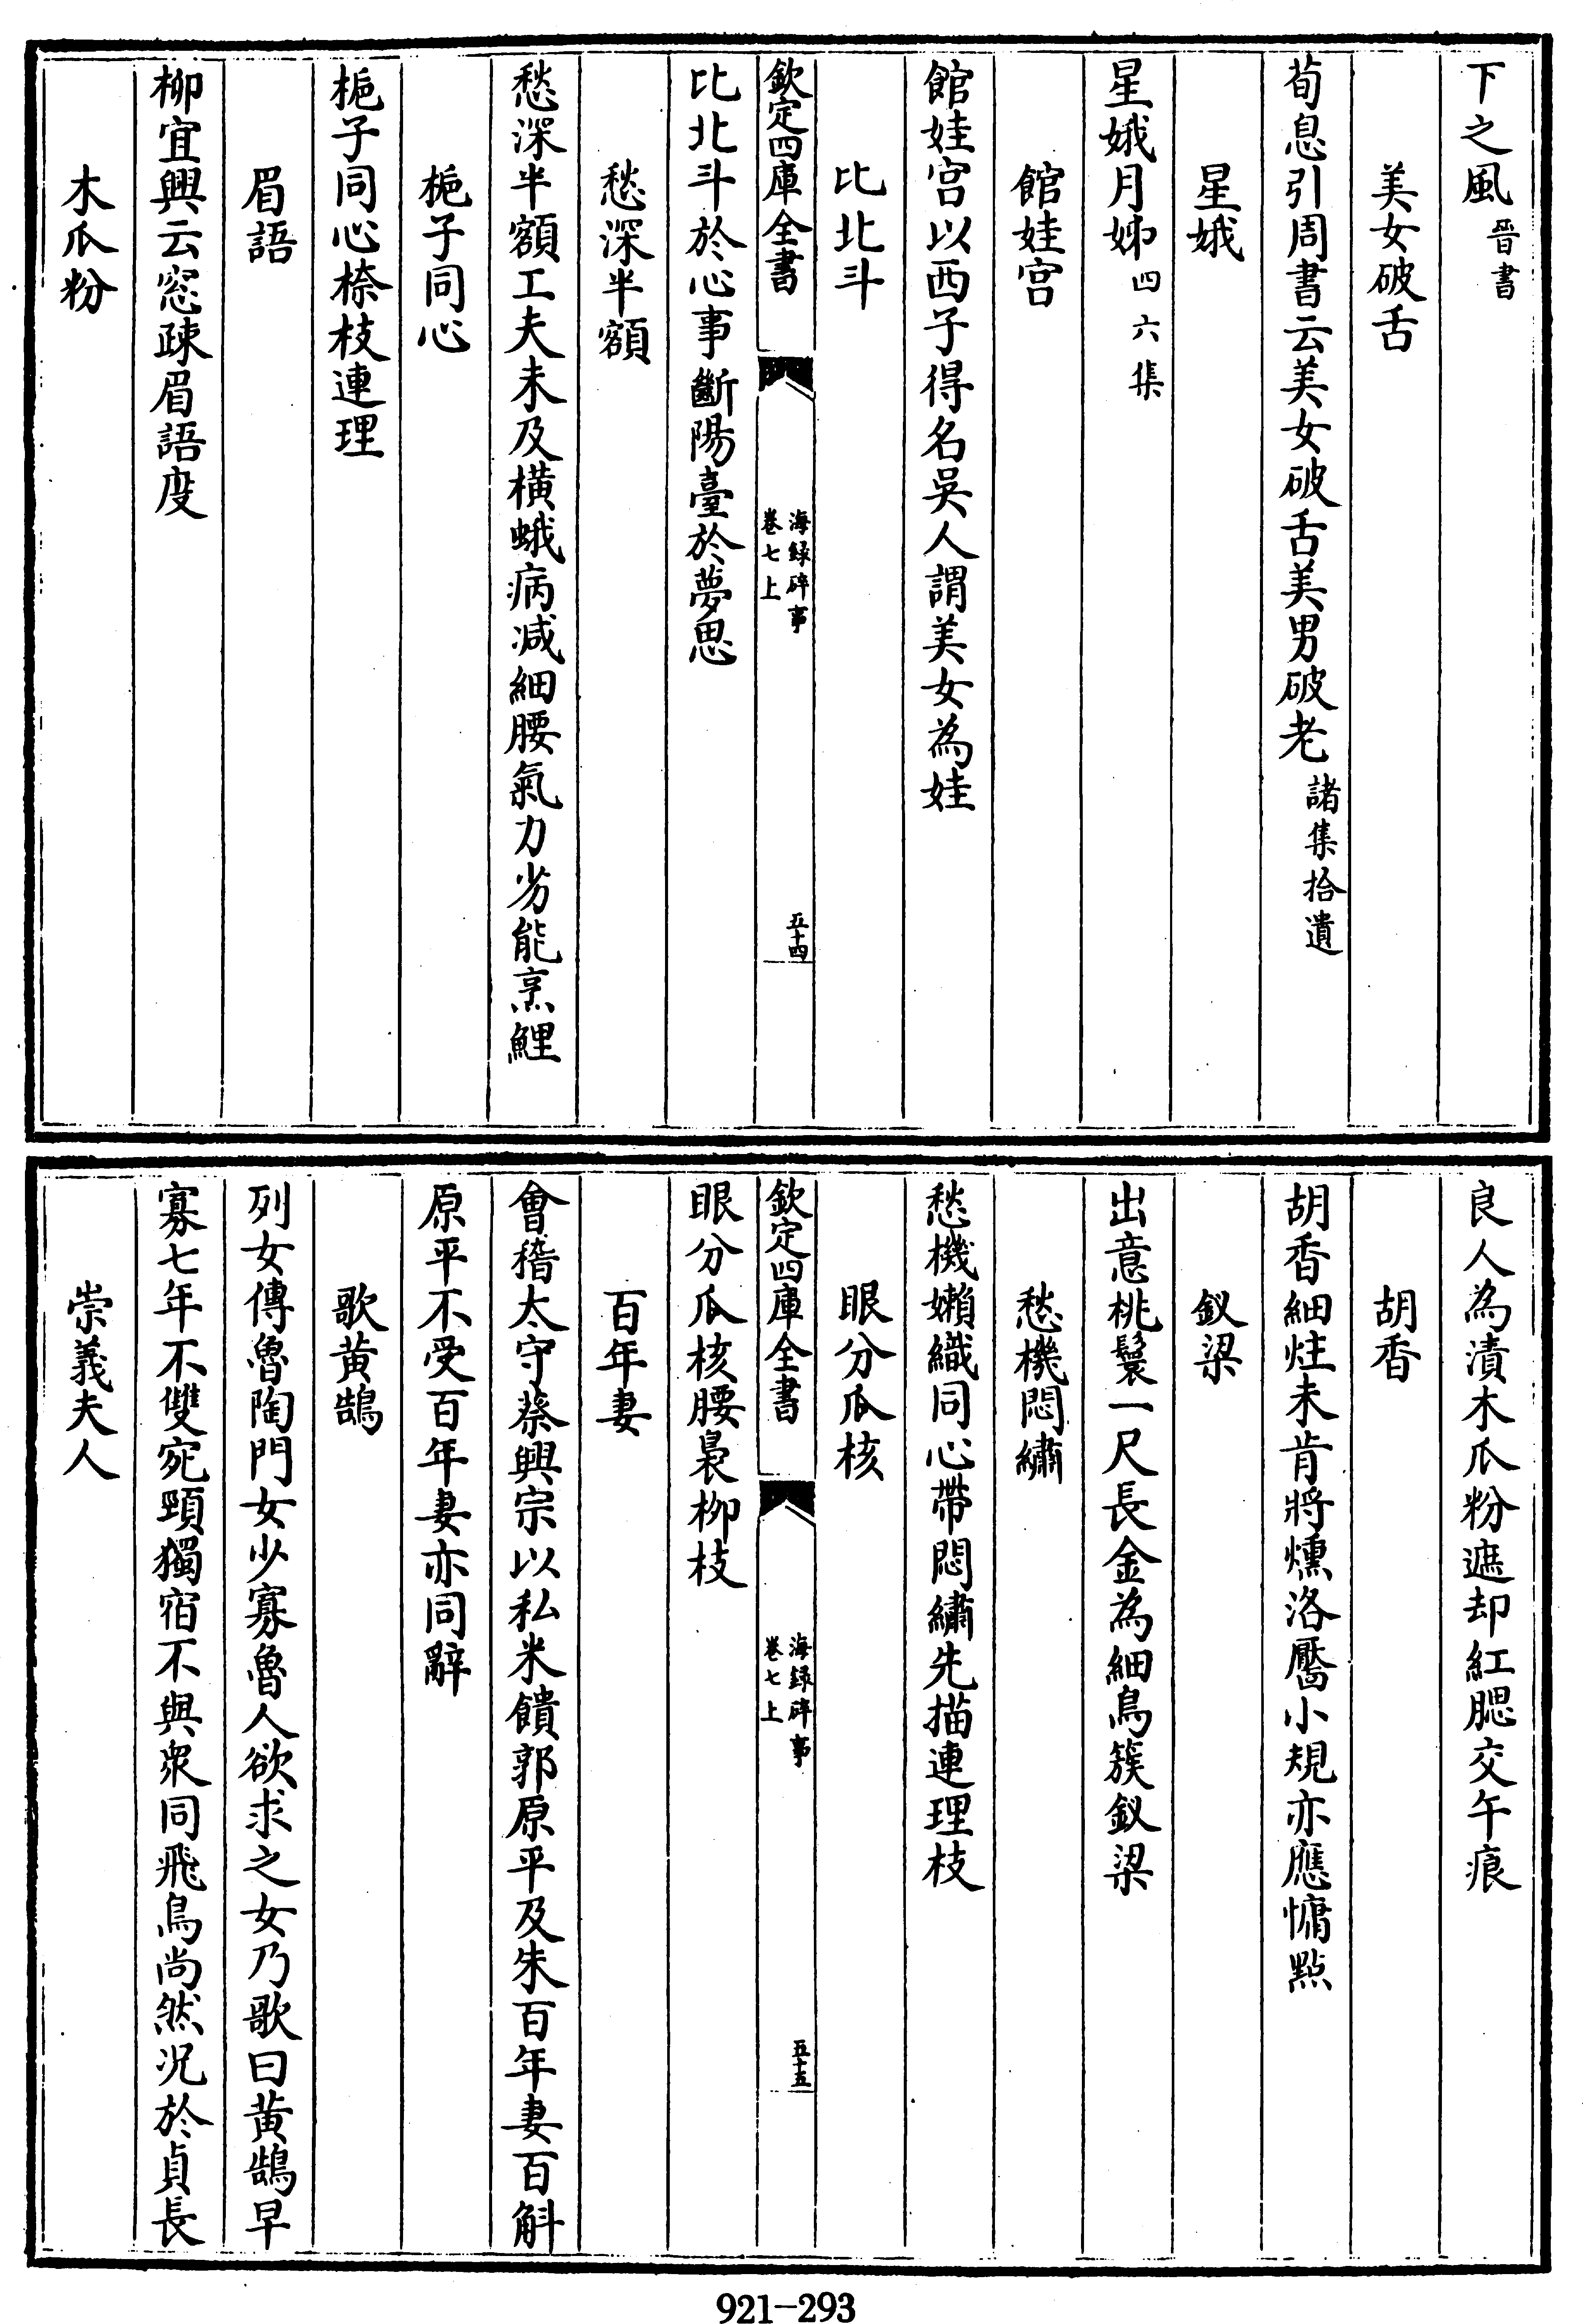 下之風晉書
美女破舌
荀息引周書云美女破舌美男破老諸集拾遺
星娥
星娥月姊四六集
館娃宮
館娃宮以西子得名吳人謂美女為娃
比北斗
欽定四庫全書
海録碎事
卷七上
五十四
比北斗於心事斷陽臺於夢思
愁深半額
愁深半額工夫未及橫蛾病减細腰氣力劣能烹鯉
梔子同心
梔子同心㮈枝連理
眉語
柳宜興云窓疎眉語度
木瓜粉
良人為漬木瓜粉遮却紅腮交午痕
胡香
胡香細炷未肯將燻洛靨小規亦應慵㸃
釵梁
出意桃鬟一尺長金為細鳥簇釵梁
愁機悶繡
愁機嬾織同心帶悶繡先描連理枝
眼分瓜核
欽定四庫全書
海録碎事
卷七上
五十五
眼分瓜核腰裊柳枝
百年妻
會稽太守蔡興宗以私米饋郭原平及朱百年妻百斛
原平不受百年妻亦同辭
歌黃鵠
列女傳魯陶門女少寡魯人欲求之女乃歌曰黃鵠早
寡七年不雙宛頸獨宿不與衆同飛鳥尚然况於貞長
崇義夫人
921-293